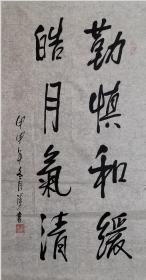 勤慎和緩
皓月氣清
甲申年
書